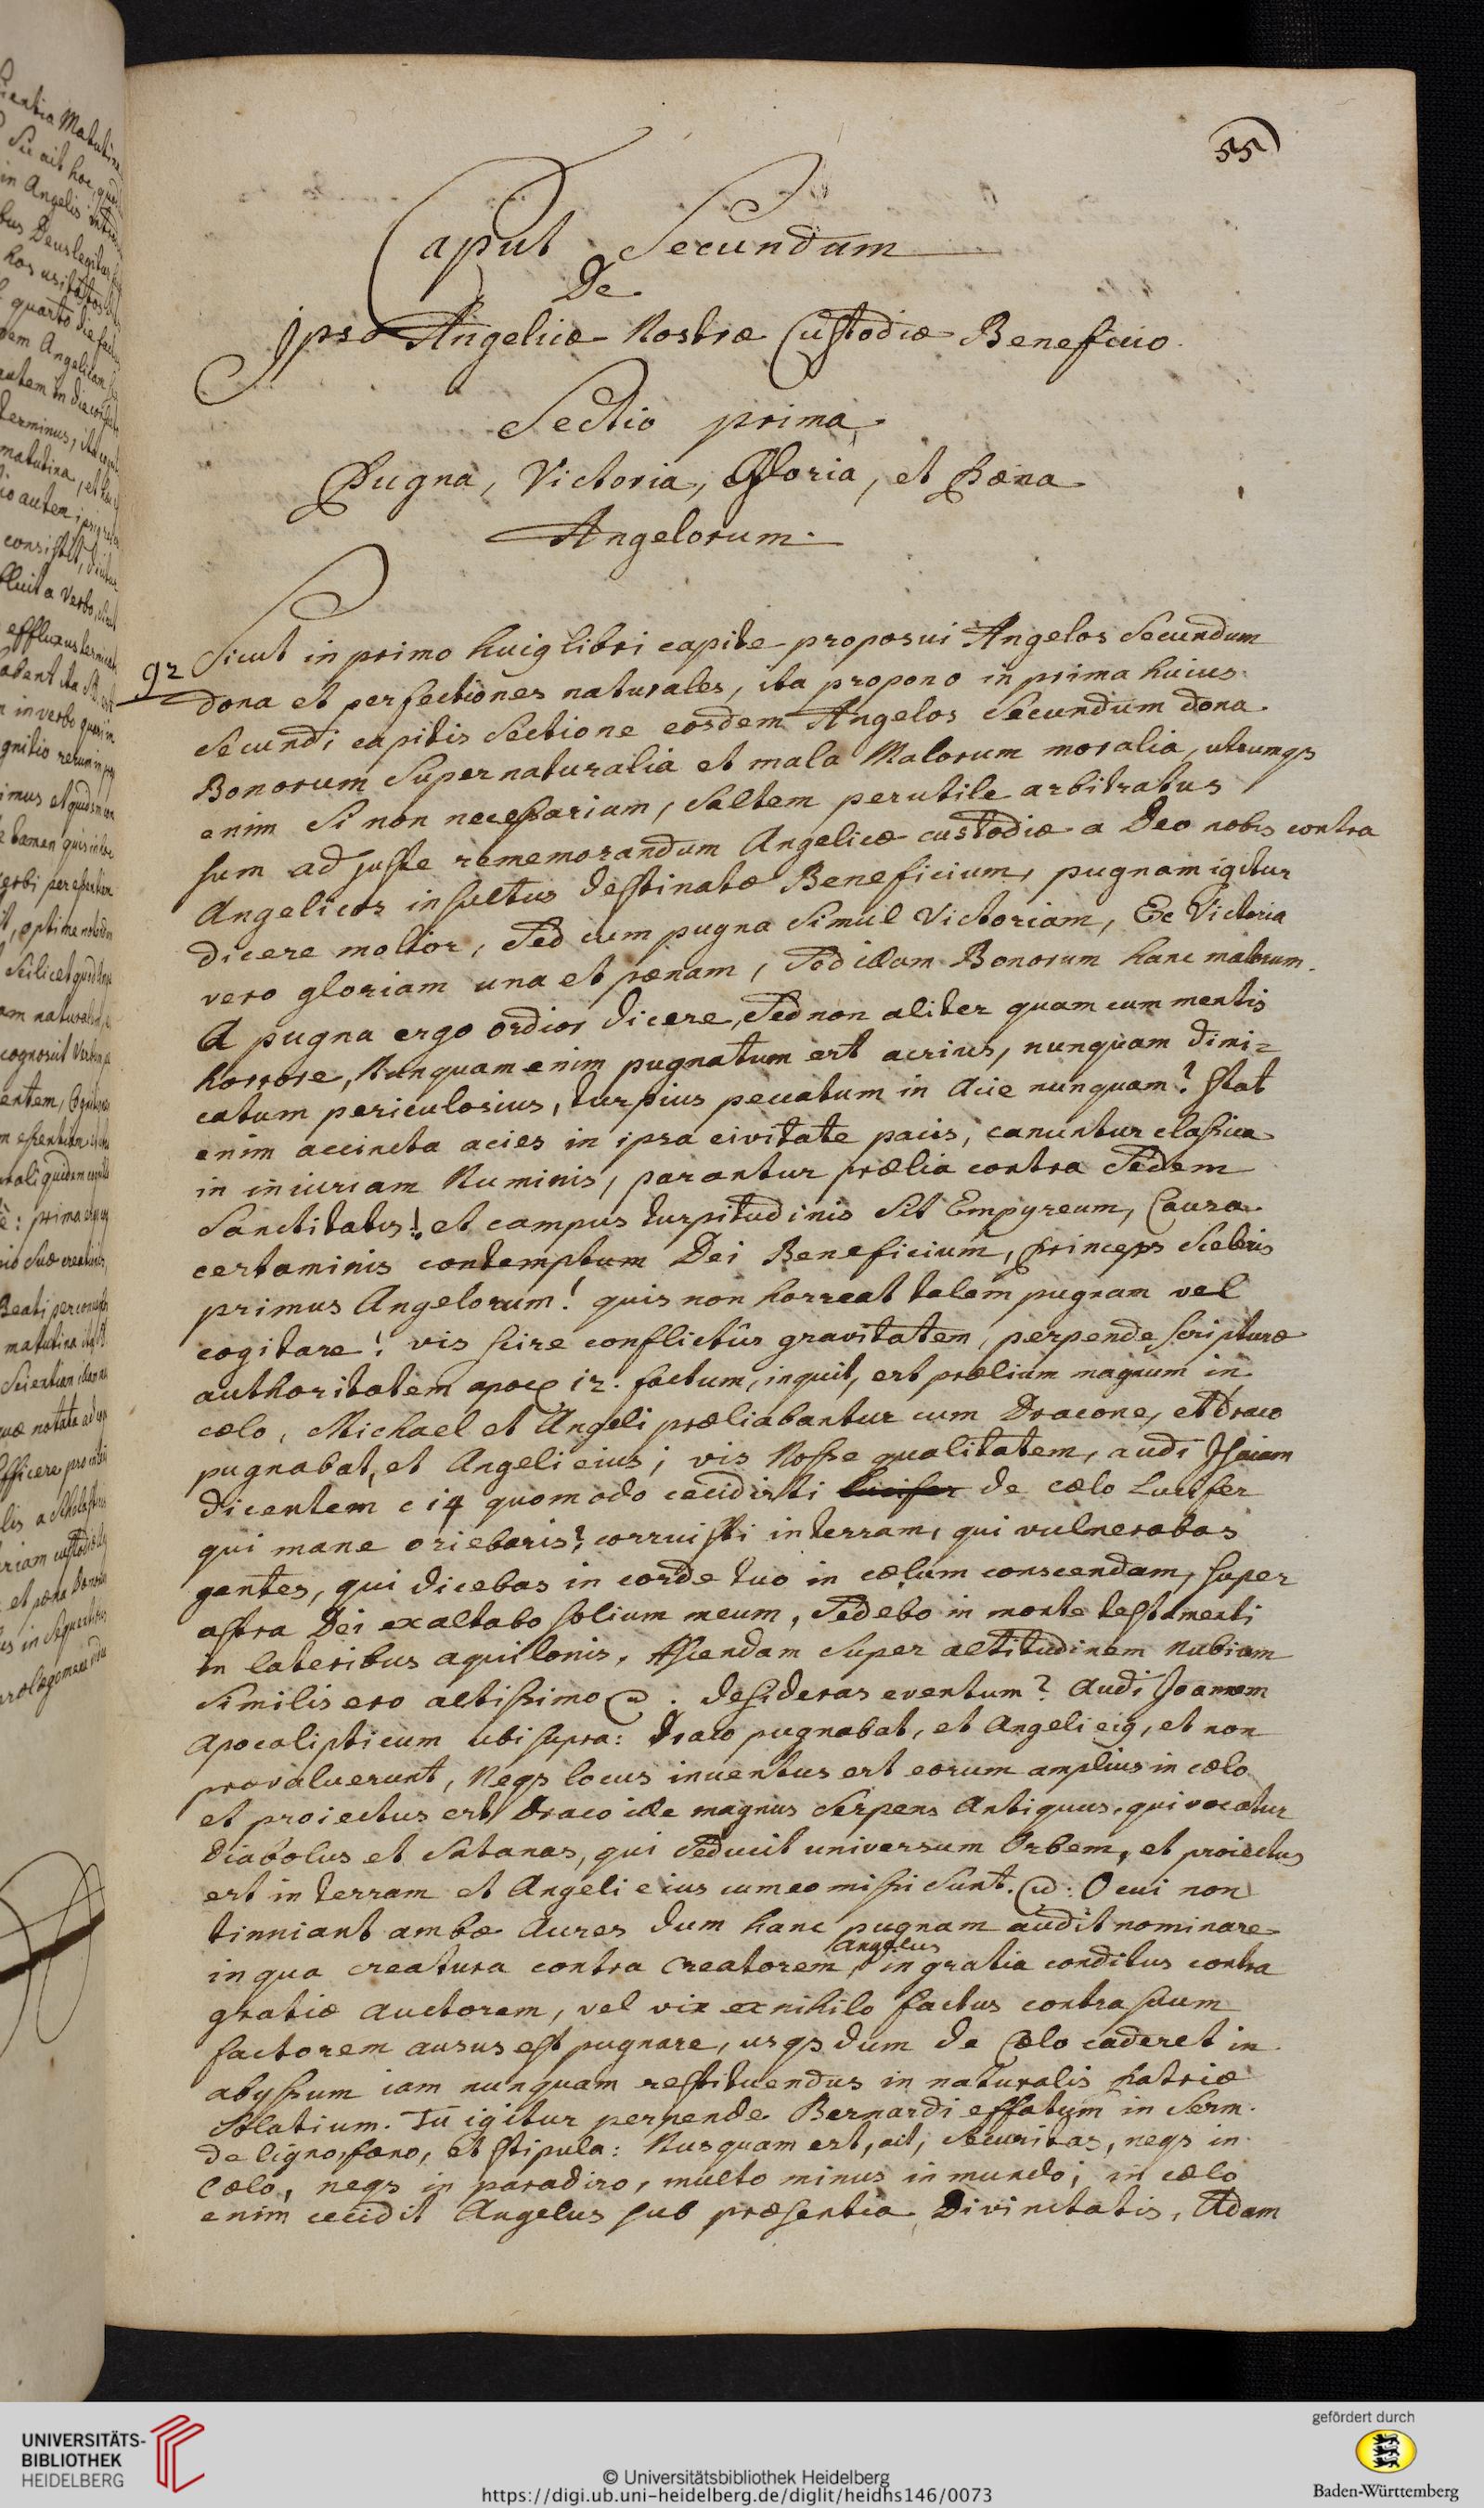 55
Caput Secundum
De
Ipso Angelicæ Nostræ Custodiæ Beneficio.
Sectio prima
Pugna, Victoria, Gloria, et Pæna
Angelorum.
92
Sicut in primo huiꝯ libri capite proposui Angelos Secundum
dona et perfectiones naturales, ita propono in prima huius
Secundi capitis Sectione eosdem Angelos Secundum dona
Bonorum Supernaturalia et mala Malorum moralia, utrumqꝫ
enim Si non necessarium, Saltem perutile arbitratus
sum ad juste rememorandum Angelicæ custodiæ a Deo nobis contra
Angelicos insultus destinatæ Beneficium, pugnam igitur
dicere molior, Sed cum pugna Simul Victoriam, Ec Victoria
vero gloriam una et pænam, Sed illam Bonorum hanc malorum.
A pugna ergo ordior dicere, Sed non aliter quam cum mentis
horrore, Nunquam enim pugnatum est acrius, nunquam dimi=
catum periculosius, turpius peccatum in Acie nunquam? stat
enim accincta acies in ipsa civitate pacis, canuntur classica
in iniuriam Numinis, parantur prælia contra Sedem
Sanctitatis! et campus turpitudinis Sit Empyreum, Causa
certaminis contemptum Dei Beneficium, Princeps Sceleris
primus Angelorum! quis non horreat talem pugnam vel
cogitare! vis scire conflictûs gravitatem, perpende scripturæ
authoritatem apoc 12. factum, inquit, est prælium magnum in
cælo, Michael et Angeli præliabantur cum Dracone, et Draco
pugnabat, et Angeli eius; vis Nosse qualitatem, audi Isaiam
dicentem c 14 quomodo cecidisti lucifer de cælo Lucifer
qui mane oriebaris? corruisti in terram, qui vulnerabas
gentes, qui dicebas in corde tuo in cælum conscendam, super
astra Dei exaltabo solium meum, Sedebo in monte testamenti
in lateribus aquilonis, Ascendam Super altitudinem Nubium
Similis ero altissimo. desideras eventum? Audi Joannem
Apocalipticum ubi supra: Draco pugnabat, et Angeli eiꝯ, et non
prævaluerunt, Neqꝫ locus inventus est eorum amplius in cælo
et proiectus est Draco ille magnus Serpens Antiquus, qui vocatur
Diabolus et Satanas, qui Seducit universum Orbem, et proiectus
est in terram et Angeli eius cum eo missi Sunt. O cui non
tinniant ambæ Aures dum hanc pugnam audit nominare
in qua creatura contra Creatorem, Angelus in gratia conditus contra
gratiæ Auctorem, vel vix ex nihilo factus contra suum
factorem ausus est pugnare, usqꝫ dum de Cælo caderet in
abyssum iam nunquam restituendus in naturalis Patriæ
Solatium. Tu igitur perpende Bernardi effatum in Serm.
de ligno, fæno, et stipula: Nusquam est, ait, Securitas, neqꝫ in
Cælo, neqꝫ in paradiso, multo minus in mundo; in cælo
enim cecidit Angelus sub præsentia Divinitatis, Adam
UNIVERSITÄTS-
BIBLIOTHEK
HEIDELBERG
© Universitätsbibliothek Heidelberg
https://digi.ub.uni-heidelberg.de/diglit/heidhs146/0073
gefördert durch
Baden-Württemberg